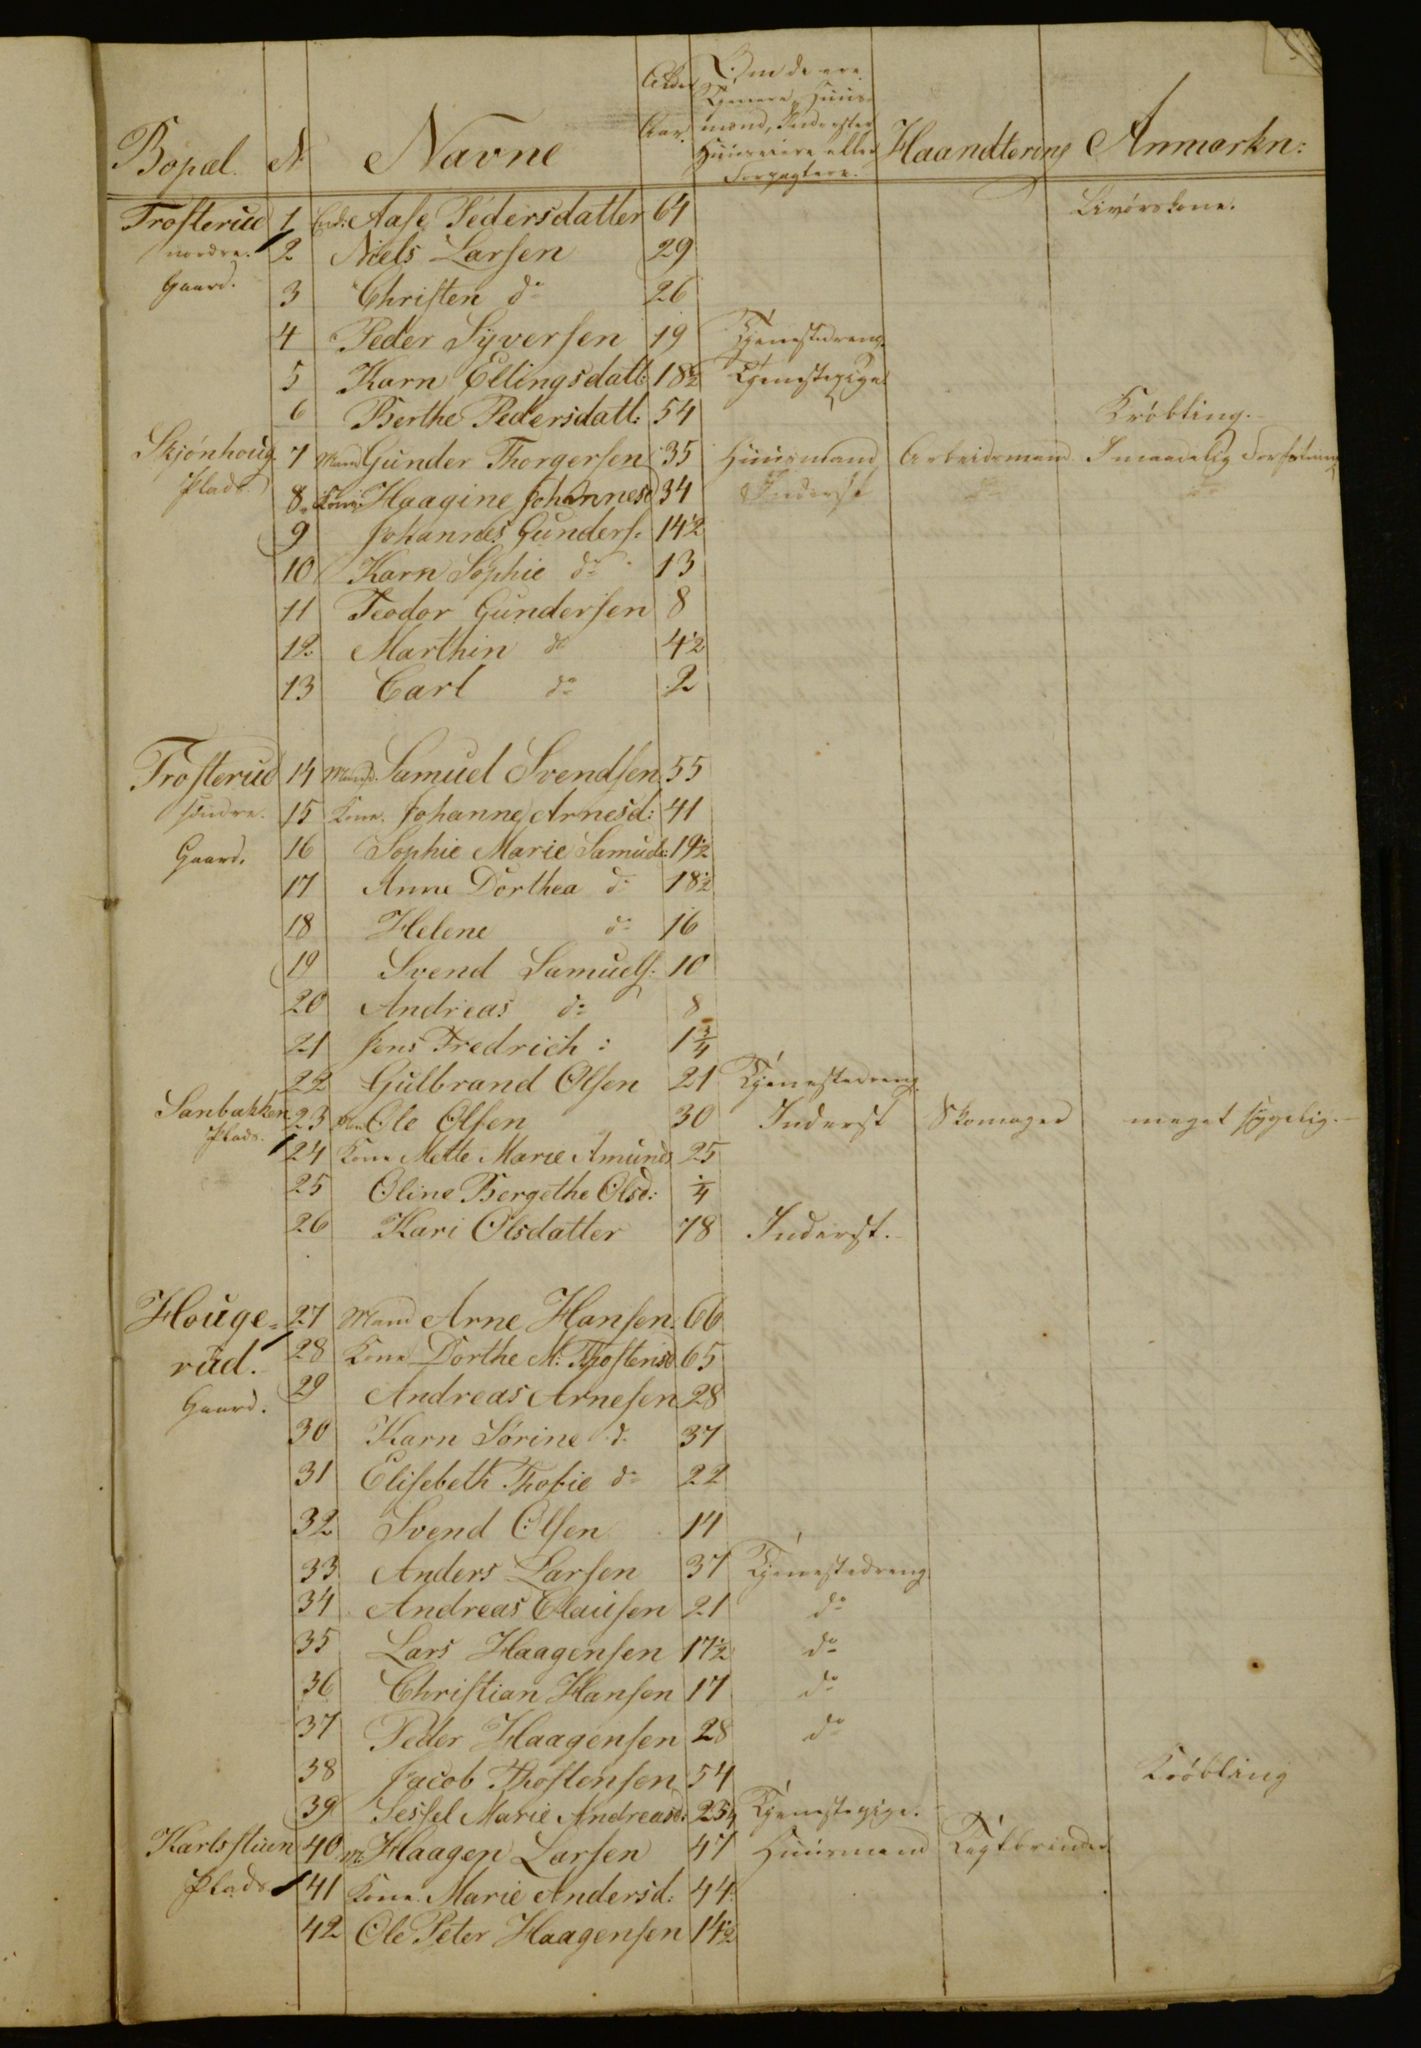 Bopæl. N Navne Alder Aar. Om de ere Tjenere, Huus- mænd, Inderster Huuseiere eller Forpagtere. Haandtering Anmærkn:
Trosterud 1 Enke Aase Pedersdatter 64 Livørskone.
nordre. 2 Niels Larsen 29
Gaard. 3 Christen do 26
4 Peder Syversen 19 Tjenestedreng
5 Karn Ellingsdatt: 18½ Tjenestepige
6 Berthe Pedersdatt: 54 Krøbling.
Skjønhoug 7 Mand Gunder Thorgersen 35 Huusmand Arbeidsmand I maadelig Forfatning
Plads. 8 Kone Haagine Johannesd 34 Inderst do do
9 Johannes Gunders. 14½
10 Karn Sophie do 13
11 Teodor Gundersen 8
12 Marthin do 4½
13 Carl do 2
Trosterud 14 Mand. Samuel Svendsen 55
søndre. 15 Kone. Johanne Arnesd: 41
Gaard. 16 Sophie Marie Samuels: 19½
17 Anne Dorthea do 18½
18 Helene do 16
19 Svend Samuels: 10
20 Andreas do 8
21 Jens Fredrich : 1¾
22 Gulbrand Olsen 21 Tjenestedreng
Sanbakken 23 Man Ole Olsen 30 Inderst Skomager meget sygelig.
Plads. 24 Kone Mette Marie Amunds 25
25 Oline Bergethe Olsd: ¼
26 Kari Olsdatter 78 Inderst.
Houge= 27 Mand Arne Hansen 66
rud. 28 Kone Dorthe M: Thostensd 65
Gaard. 29 Andreas Arnesen 28
30 Karn Sørine d. 37
31 Elisebeth Thofie do 22
32 Svend Olsen 14
33 Anders Larsen 37 Tjenestedreng
34 Andreas Clausen 21 do
35 Lars Haagensen 17½ do
36 Christian Hansen 17 do
37 Peder Haagensen 28 do
38 Jacob Thostensen 54 Krøbling
39 Sessel Marie Andreasd: 25¼ Tjenestepige.
Karlsstuen 40 M. Haagen Larsen 47 Huusmand
Plads 41 Kone. Marie Andersd: 44
42 Ole Peter Haagensen 14½